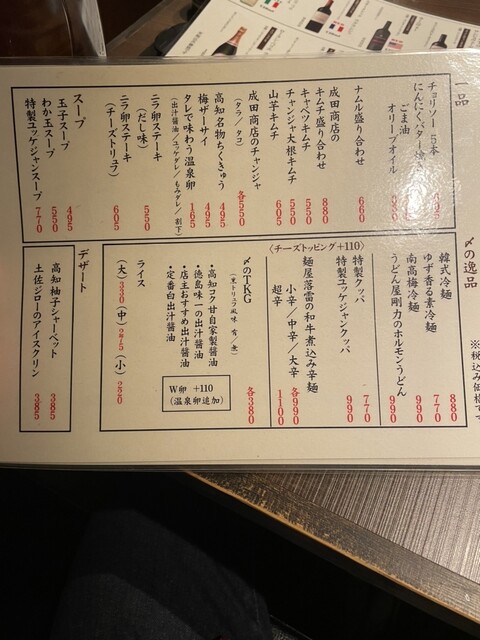 一品
チョリソー 5本
にんにくバター
ごま油
オリーブオイル
ナムル盛り合わせ 660
成田商店の
キムチ盛り合わせ 880
キャベツキムチ 550
チャンジャ大根キムチ 550
山芋キムチ 605
成田商店のチャンジャ
(タラ／タコ) 各550
高知名物ちくきゅう 495
梅ザーサイ 495
タレで味わう温泉卵 165
(出汁醤油／ユッケダレ／もみダレ／割下)
ニラ卵ステーキ
(だし味) 550
ニラ卵ステーキ
(チーズトリュフ) 605
スープ
玉子スープ 495
わか玉スープ 550
特製ユッケジャンスープ 770
〆の逸品
韓式冷麺 880
ゆず香る素冷麺 770
南高梅冷麺 990
うどん屋剛力のホルモンうどん 990
〈チーズトッピング+110〉
特製クッパ 770
特製ユッケジャンクッパ 990
麺屋落雷の和牛煮込み辛麺
小辛／中辛／大辛 各990
超辛 1100
〆のTKG
(黒トリュフ風味 有／無) 各380
・高知コク甘自家製醤油
・徳島味一の出汁醤油
・店主おすすめ出汁醤油
・定番白出汁醤油
W卵 +110
(温泉卵追加)
ライス
(大)330(中)275(小)220
デザート
高知柚子シャーベット 385
土佐ジローのアイスクリン 385